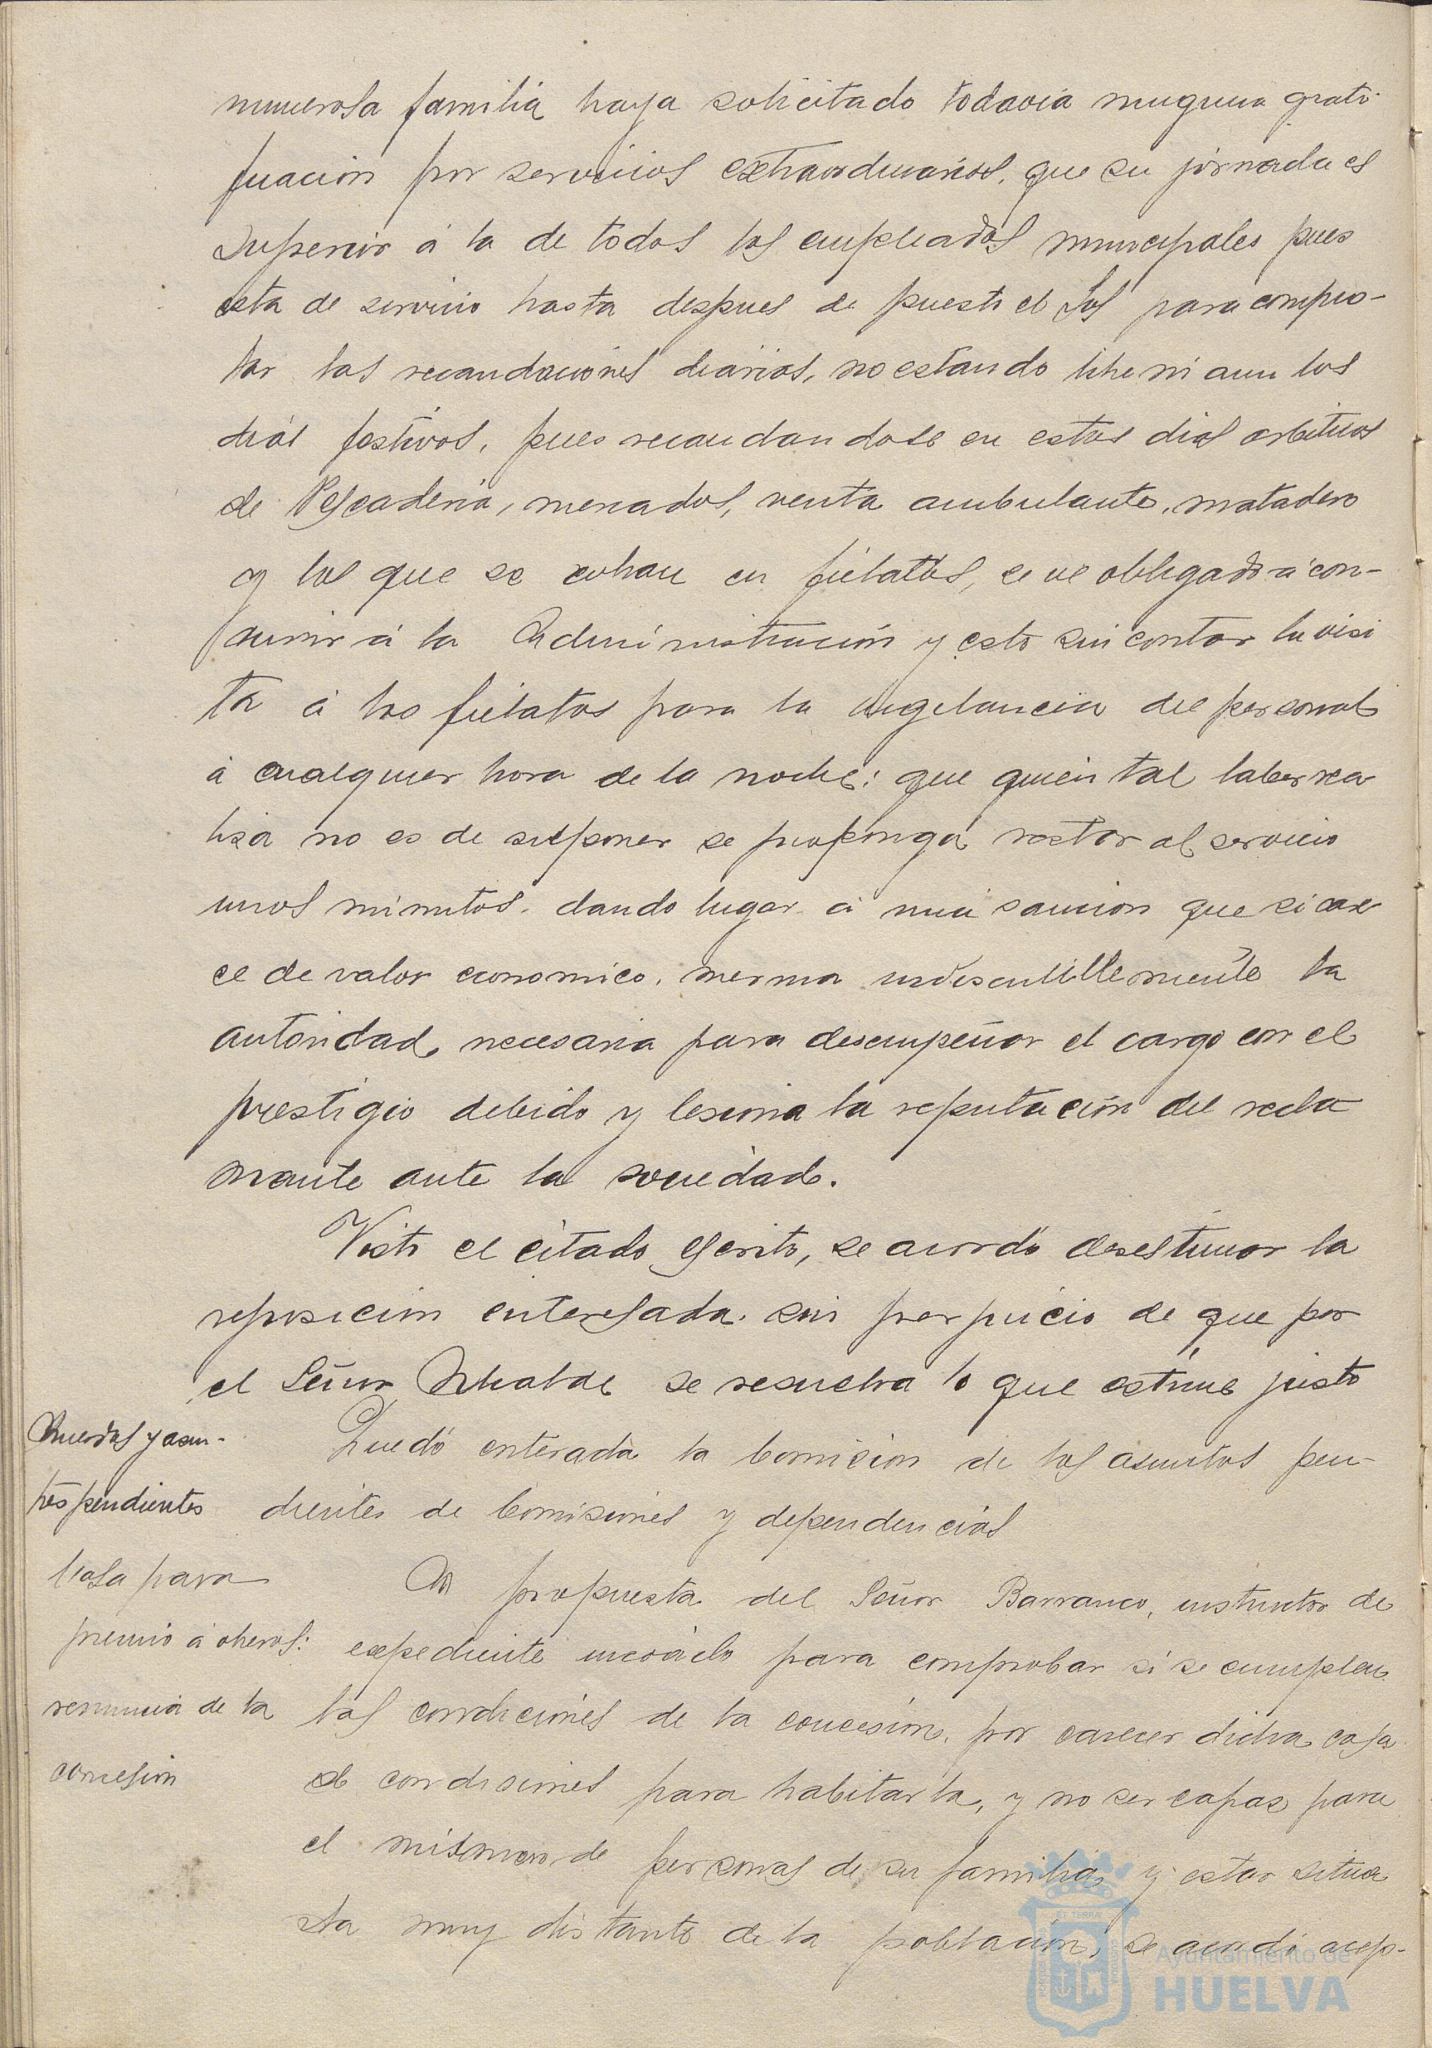 numerosa familia haya solicitado todavia ninguna grati-
ficación por servicios extraordinarios, que su jornada es
superior á la de todos los empleados municipales pues
esta de servicio hasta despues de puesto el Sol para comple-
tar las recaudaciones diarias, no estando libre ni aun los
dias festivos, pues recaudandose en estos dias arbitrios
de Pescaderia, mercados, venta ambulante, matadero
y los que se cobran en fielatos, se ve obligado á con-
currir á la Administración y esto sin contar la visi
ta á los fielatos para la vigilancia del personal
á cualquier hora de la noche; que quien tal labor rea
liza no es de suponer se proponga restar al servicio
unos minutos, dando lugar á una sancion que si care
ce de valor economico, merma indiscutiblemente la
autoridad necesaria para desempeñar el cargo con el
prestigio debido y lesiona la reputación del recla
mante ante la sociedad.
Visto el citado escrito, se acordó desestimar la
reposición interesada, sin perjuicio de que por
el Señor Alcalde se resuelva lo que estime justo
Acuerdos y asun-
tos pendientes
Quedó enterada la Comision de los asuntos pen-
dientes de Comisiones y dependencias
Casa para
premio á obreros:
renuncia de la
concesión
A propuesta del Señor Barranco, instructor de
expediente incoado para comprobar si se cumplen
las condiciones de la concesión, por carecer dicha casa
de condiciones para habitarla, y no ser capaz para
el número de personas de su familia y estar situa
da muy distante de la población, se acordó acep-
Ayuntamiento de
HUELVA